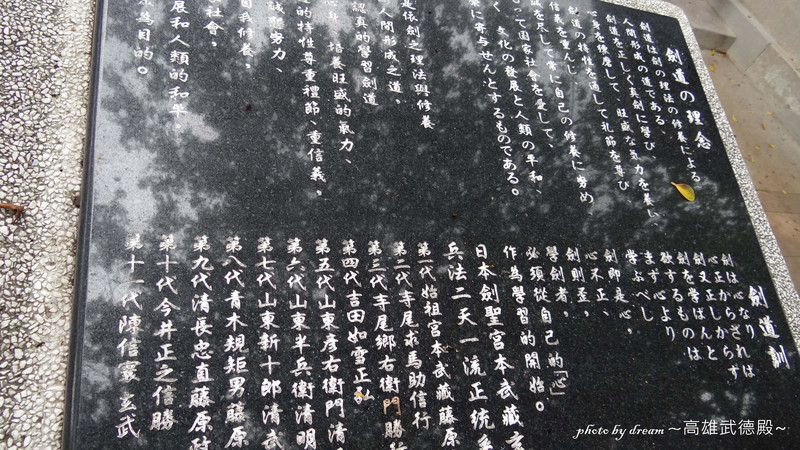 劍道の理念
劍道は劍の理法の修養による
人間形成の道である、
劍道を正しく真劍に學び、
心身を練磨して、旺盛な気力を養い、
劍道の特性を通して礼節を尊び
信義を重んじ
誠を尽して、常に自己の修養に努め
って国家社会を愛して、
く、文化の發展と人類の平和、
に寄与せんとするものである。
是依劍之理法與修養
人間形成之道。
認真的學習劍道
培養旺盛的氣力、
的特性尊重禮節、重信義。
努力、
自我修養。
社會。
展和人類的和平
為目的。
劍道訓
劍は心なり
心正しからざれば
劍又正しからず
劍を学ばんと
欲するものは
まず心より
学ぶべし
劍即是心，
心不正、
劍則歪，
學劍者，
必須從自己的「心」
作為學習的開始。
日本劍聖宮本武藏玄
兵法二天一流正統
第一代始祖宮本武藏藤原
第二代寺尾求馬助信行
第三代寺尾鄉右衛門勝行
第四代吉田如雪正弘
第五代山東彦右衛門清
第六代山東半兵衛清明
第七代山東新十郎清武
第八代青木規矩男藤原
第九代清長忠直藤原
第十代今井正之信勝
第十一代陳信寰玄武
photo by dream ～高雄武德殿~